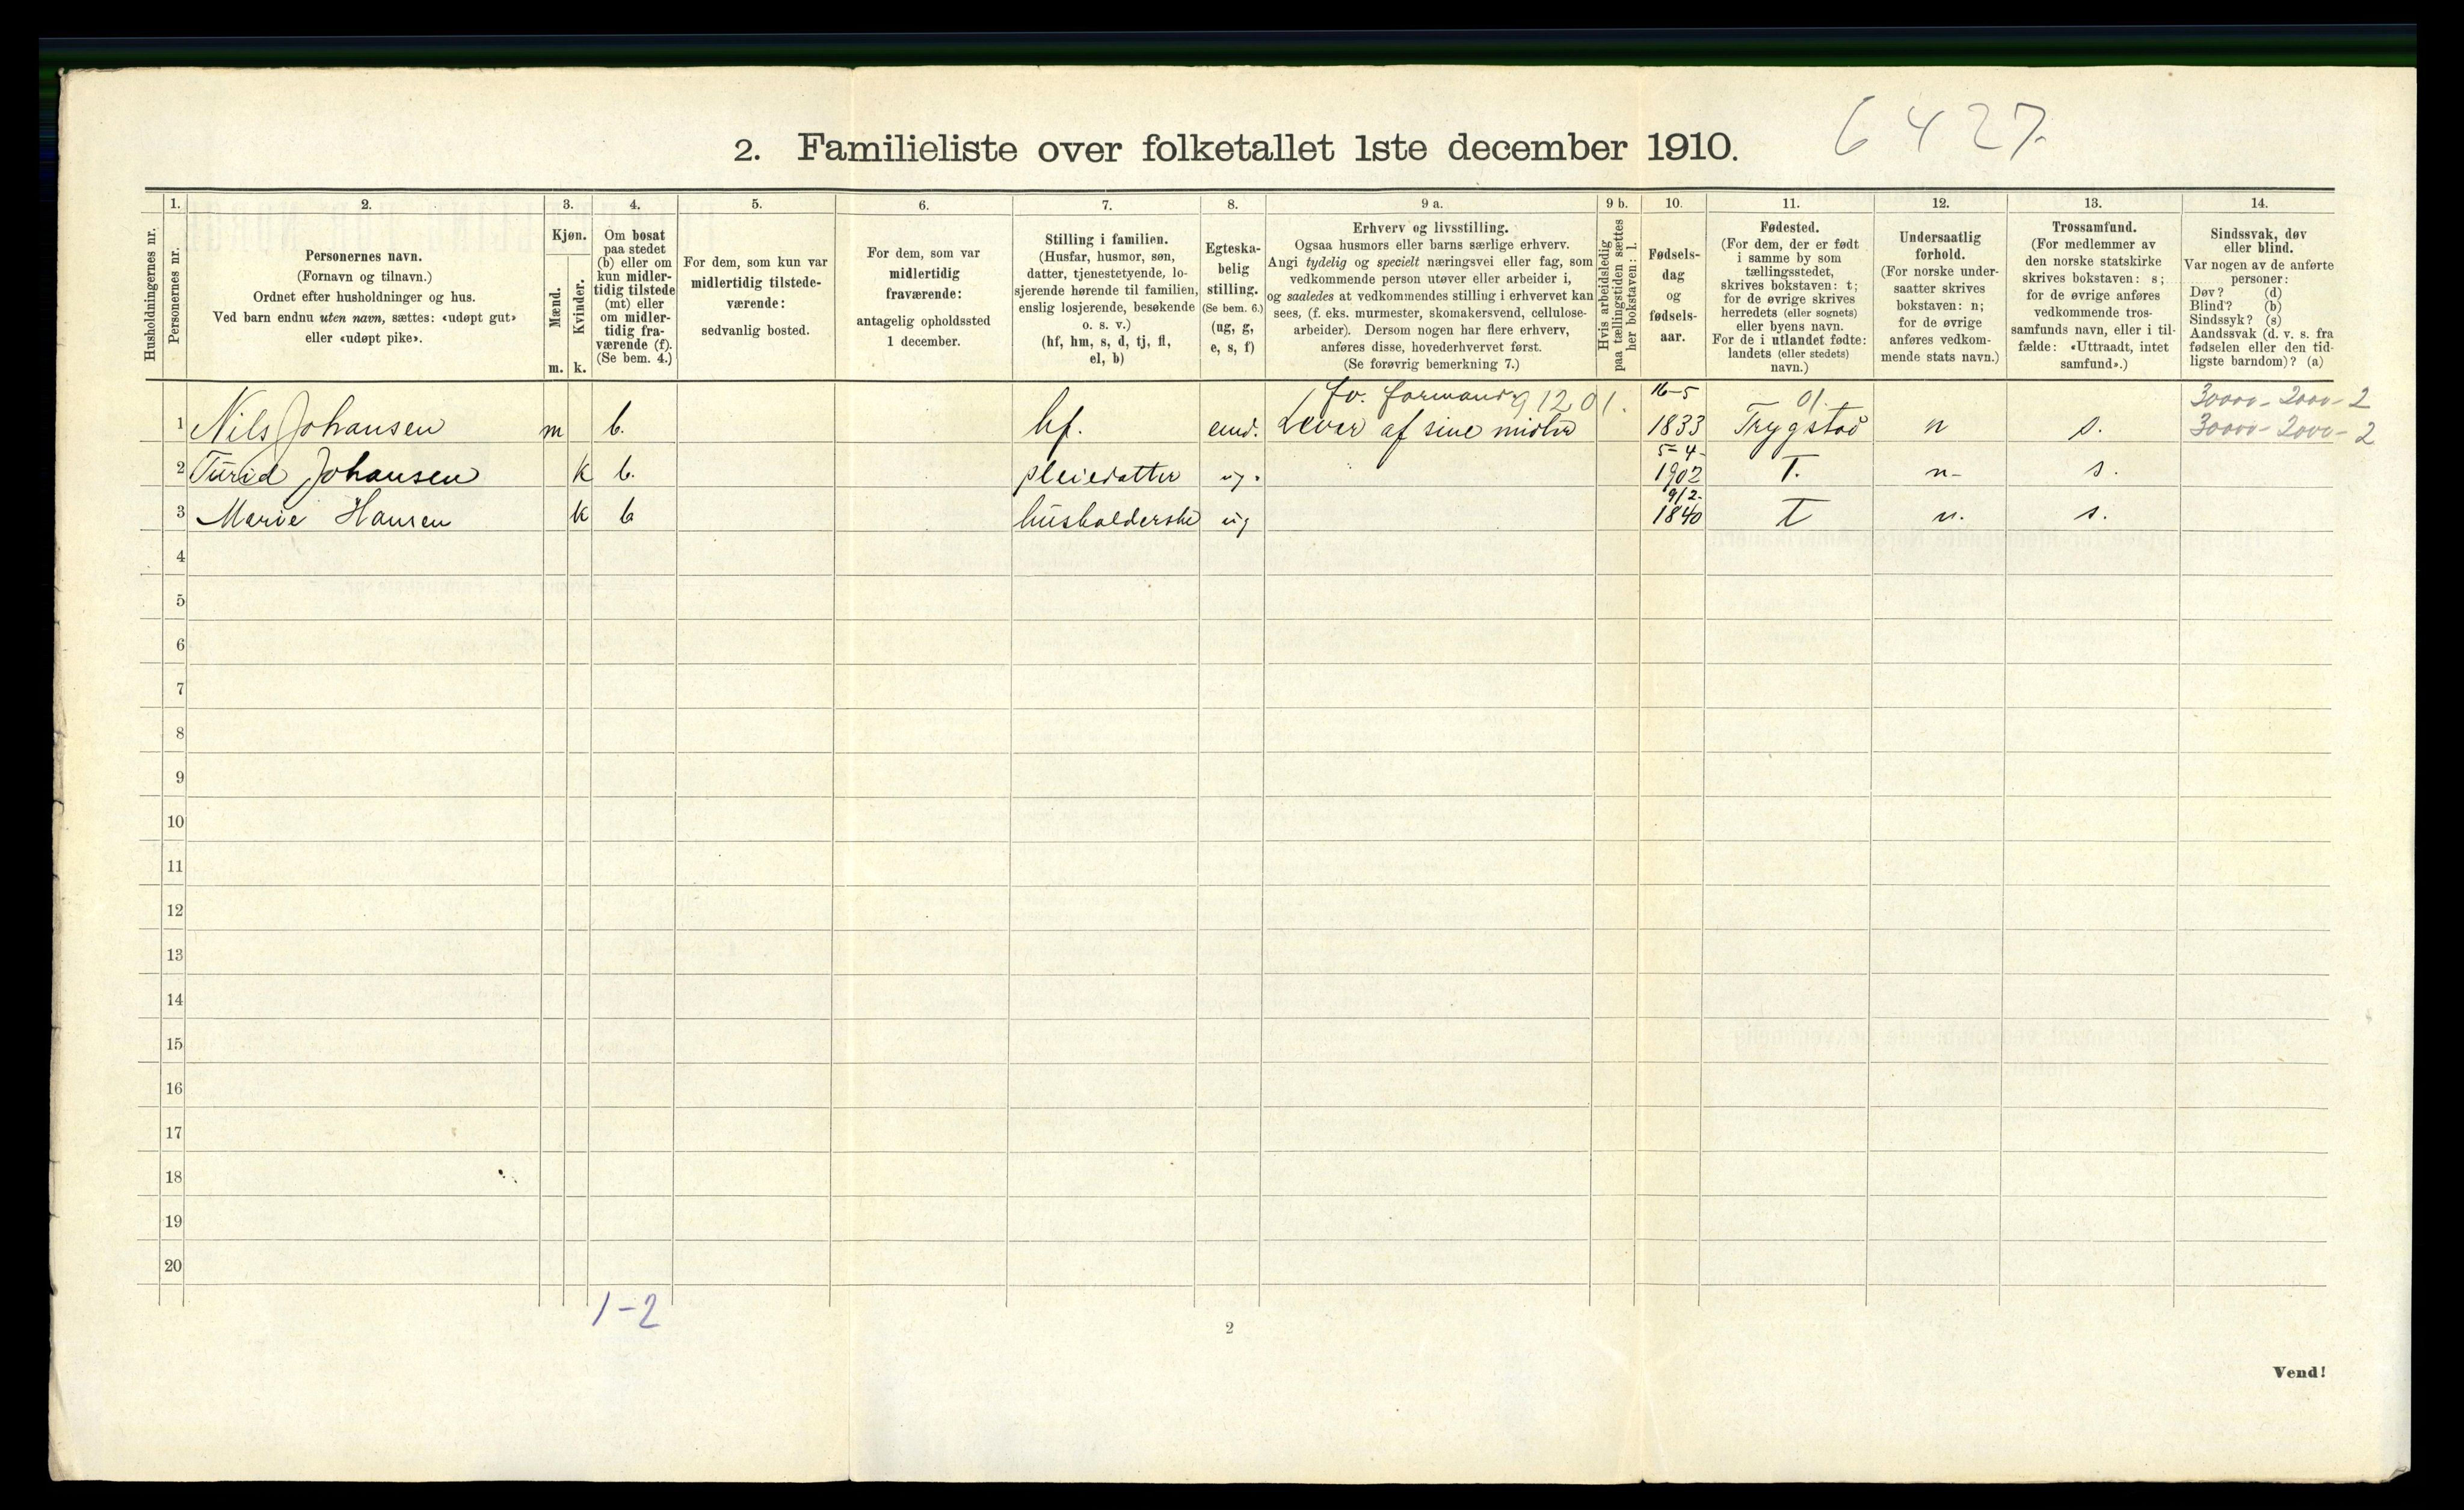 2. Familieliste over folketallet 1ste december 1910.
6427.
Husholdningernes nr.
1.
Personernes nr.
2.
Personernes navn.
(Fornavn og tilnavn.)
Ordnet efter husholdninger og hus.
Ved barn endnu uten navn, sættes: «udøpt gut»
eller «udøpt pike».
3.
Kjøn.
Mænd.
Kvinder.
m. k.
4.
Om bosat
paa stedet
(b) eller om
kun midler-
tidig tilstede
(mt) eller
om midler-
tidig fra-
værende (f).
(Se bem. 4.)
5.
For dem, som kun var
midlertidig tilstede-
værende:
sedvanlig bosted.
6.
For dem, som var
midlertidig
fraværende:
antagelig opholdssted
1 december.
7.
Stilling i familien.
(Husfar, husmor, søn,
datter, tjenestetyende, lo-
sjerende hørende til familien,
enslig losjerende, besøkende
o. s. v.)
(hf, hm, s, d, tj, fl,
el, b)
8.
Egteska-
belig
stilling.
(Se bem. 6.)
(ug, g,
e, s, f)
9 a.
Erhverv og livsstilling.
Ogsaa husmors eller barns særlige erhverv.
Angi tydelig og specielt næringsvei eller fag, som
vedkommende person utøver eller arbeider i,
og saaledes at vedkommendes stilling i erhvervet kan
sees, (f. eks. murmester, skomakersvend, cellulose-
arbeider). Dersom nogen har flere erhverv,
anføres disse, hovederhvervet først.
(Se forøvrig bemerkning 7.)
9 b.
Hvis arbeidsledig
paa tællingstiden sættes
her bokstaven: l.
10.
Fødsels-
dag
og
fødsels-
aar.
11.
Fødested.
(For dem, der er født
i samme by som
tællingsstedet,
skrives bokstaven: t;
for de øvrige skrives
herredets (eller sognets)
eller byens navn.
For de i utlandet fødte:
landets (eller stedets)
navn.)
12.
Undersaatlig
forhold.
(For norske under-
saatter skrives
bokstaven: n;
for de øvrige
anføres vedkom-
mende stats navn.)
13.
Trossamfund.
(For medlemmer av
den norske statskirke
skrives bokstaven: s;
for de øvrige anføres
vedkommende tros-
samfunds navn, eller i til-
fælde: «Uttraadt, intet
samfund».)
14.
Sindssvak, døv
eller blind.
Var nogen av de anførte
personer:
Døv? (d)
Blind? (b)
Sindssyk? (s)
Aandssvak (d. v. s. fra
fødselen eller den tid-
ligste barndom)? (a)
fv. formand 91201. 16-5 01. 30000 - 2000 - 2
1 Nils Johansen m b. hf. emd. Lever af sine midler 1833 Trygstad n s. 30000 - 2000 - 2
5-4-
2 Turid Johansen k b. pleiedatter ug. 1902 T. n- s.
9/2-
3 Marie Hansen k b husholderske ug 1840 T n. s.
4
5
6
7
8
9
10
11
12
13
14
15
16
17
18
19
20
1-2
2
Vend!